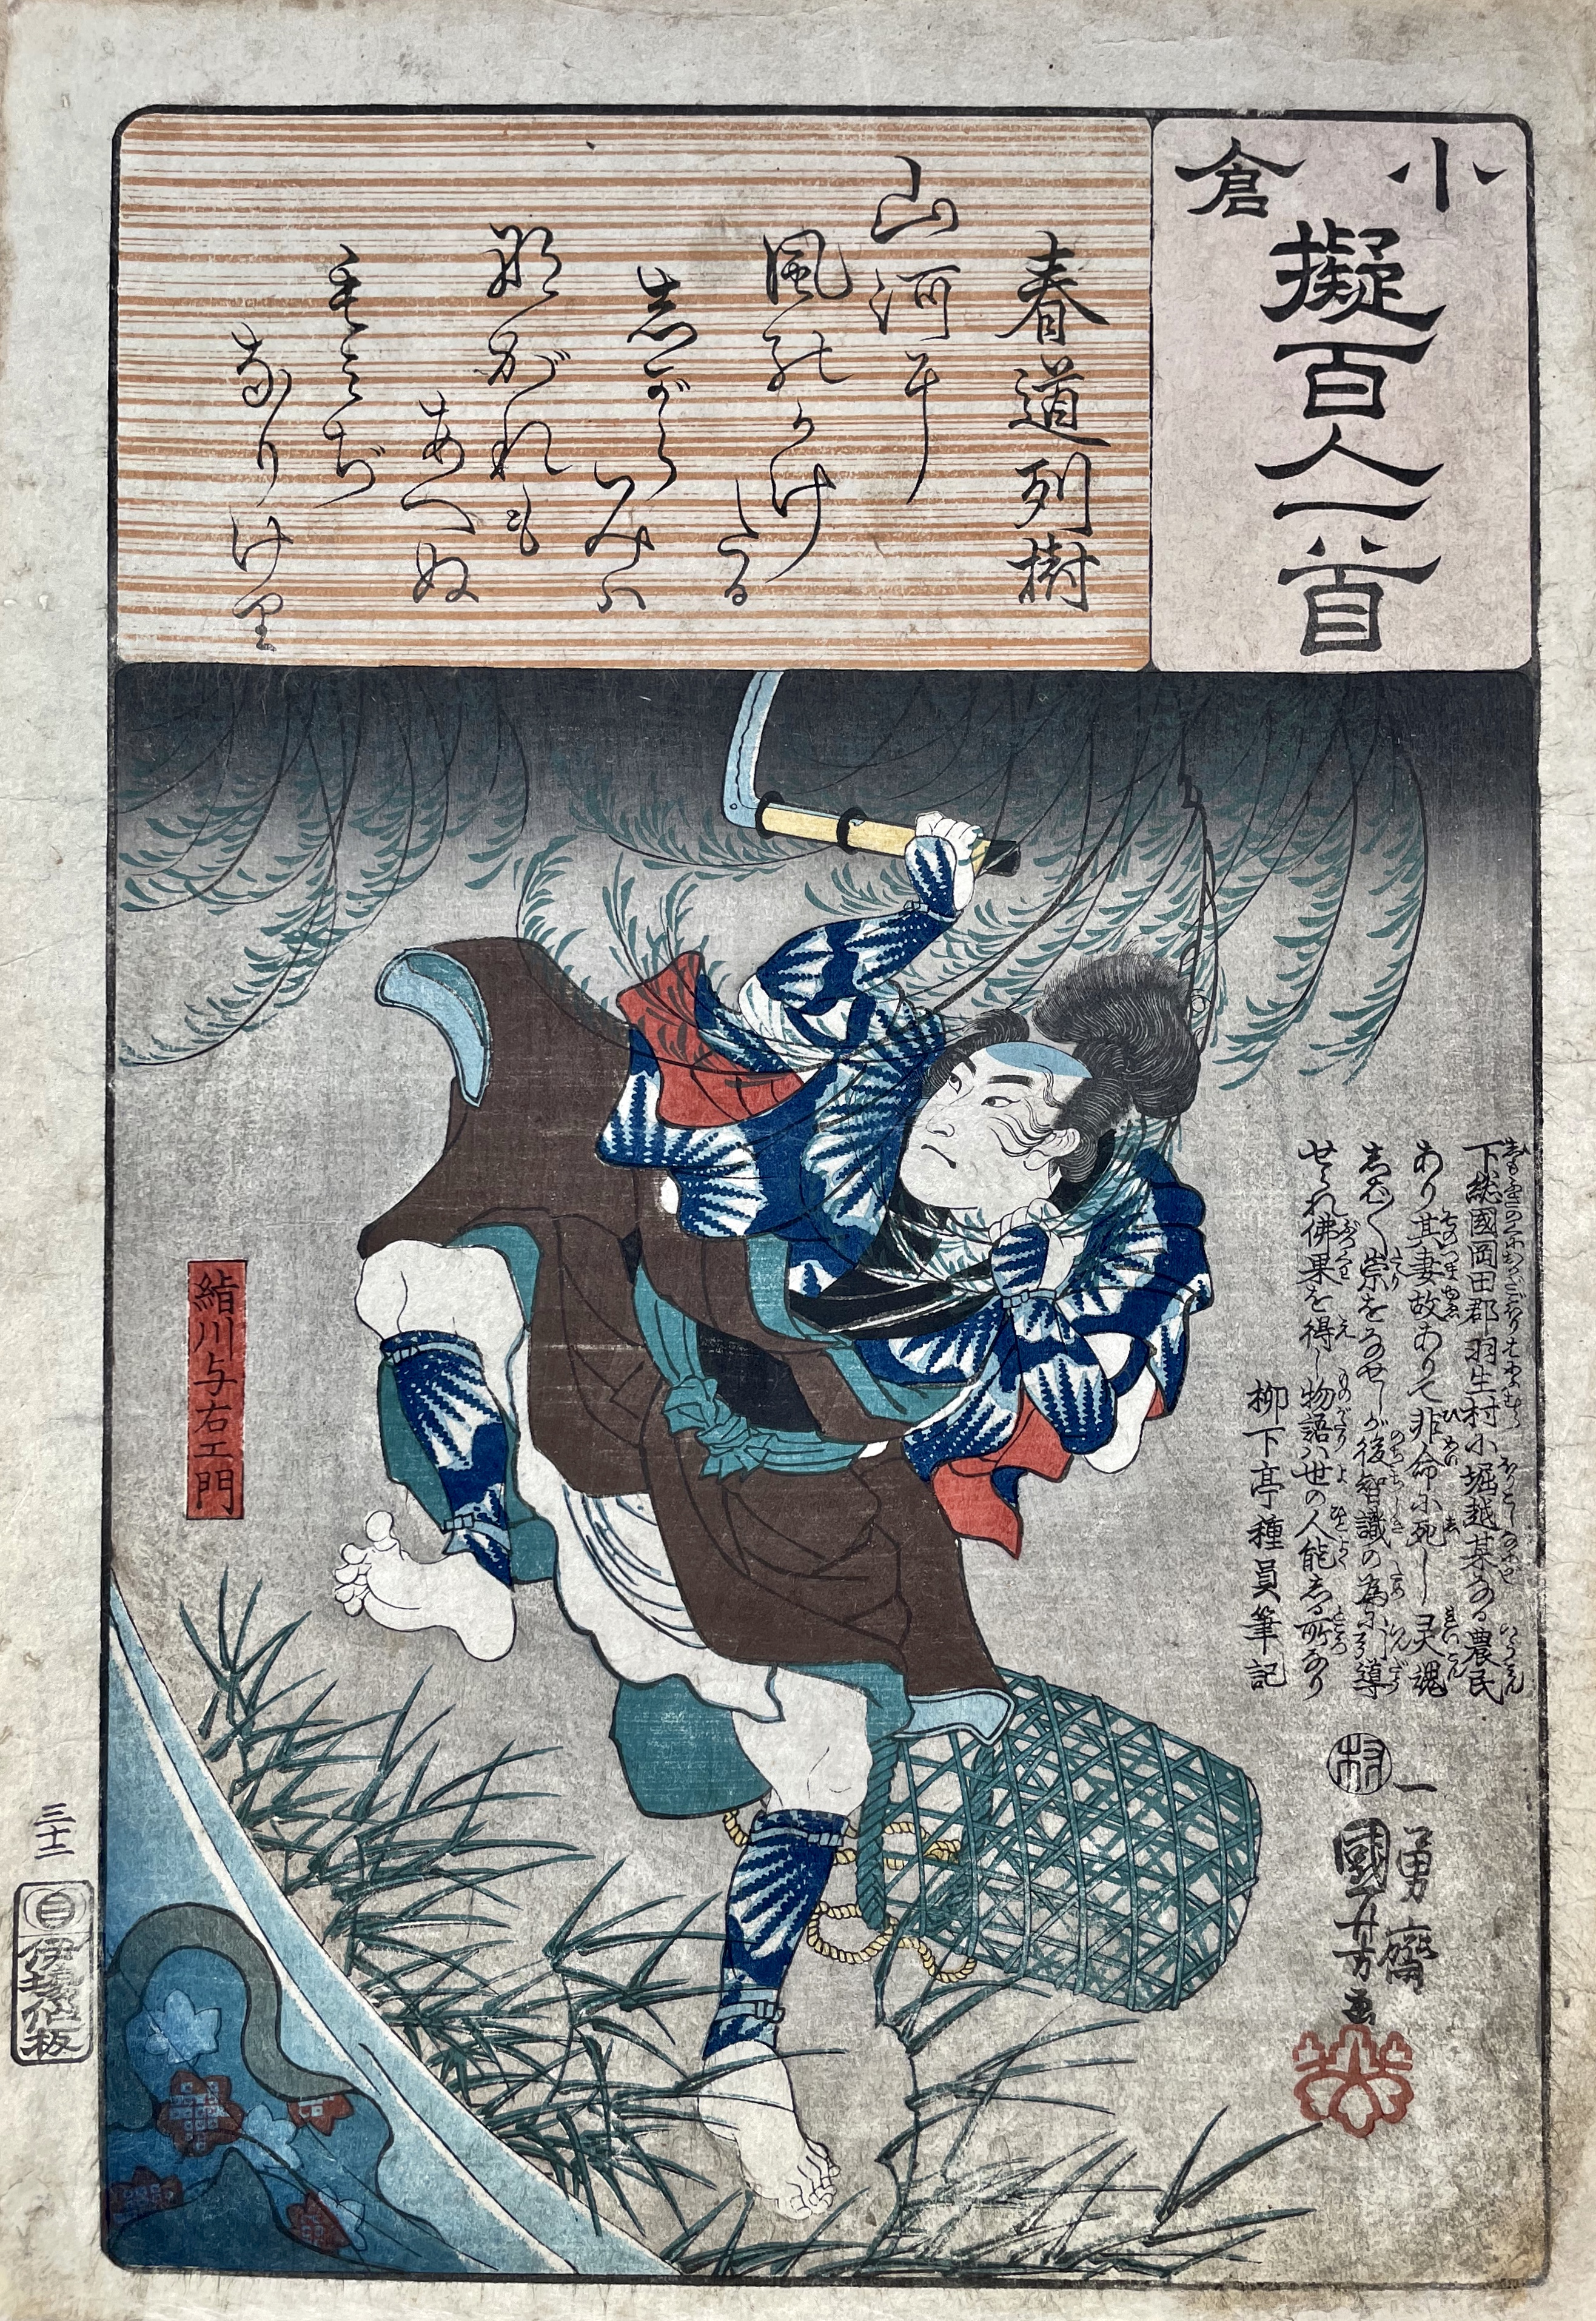 小倉
擬百人一首
春道列樹
山河に
風のかけ
たる
志がら
みハ
ながれも
あへぬ
もみぢ
なりけり
下総國岡田郡羽生村小堀越某なる農民
あり其妻故ありて非命に死し灵魂
志ば〱祟をなせしが後智識の為に引導
せられ佛果を得し物語ハ世の人能志る所なり
柳下亭種員筆記
絬川与右エ門
村
一勇齋
國芳画
三十二
伊場仙板